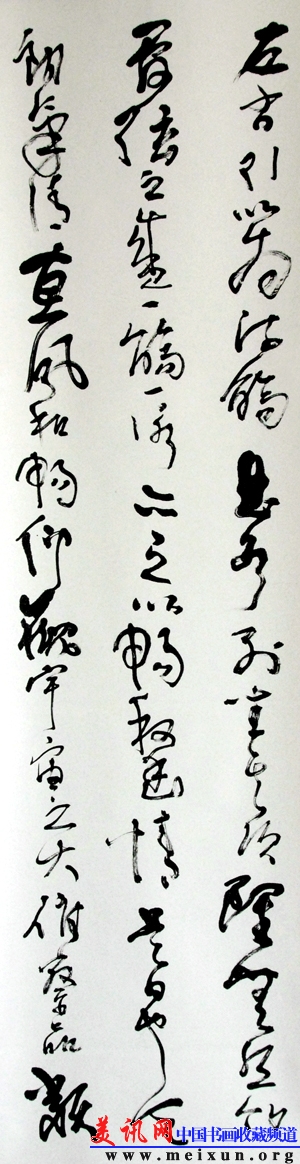 左右引以為流觴曲水列坐其次雖無絲竹
管弦之盛一觴一詠亦足以暢叙幽情是日也天
朗氣清惠風和暢仰觀宇宙之大俯察品類
美讯网 中国书画收藏频道
www.meixun.org